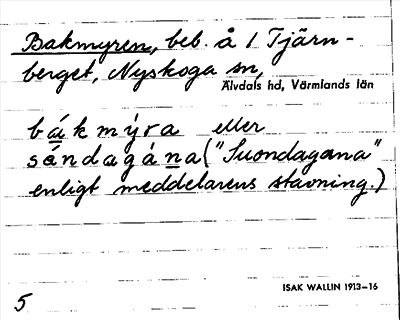 Bakmyren, beb. å 1 Tjärn-
berget, Nyskoga sn,
Älvdals hd, Värmlands län
bákmýra eller
sándagána ("Suondagana"
enligt meddelarens stavning.)
ISAK WALLIN 1913-16
5